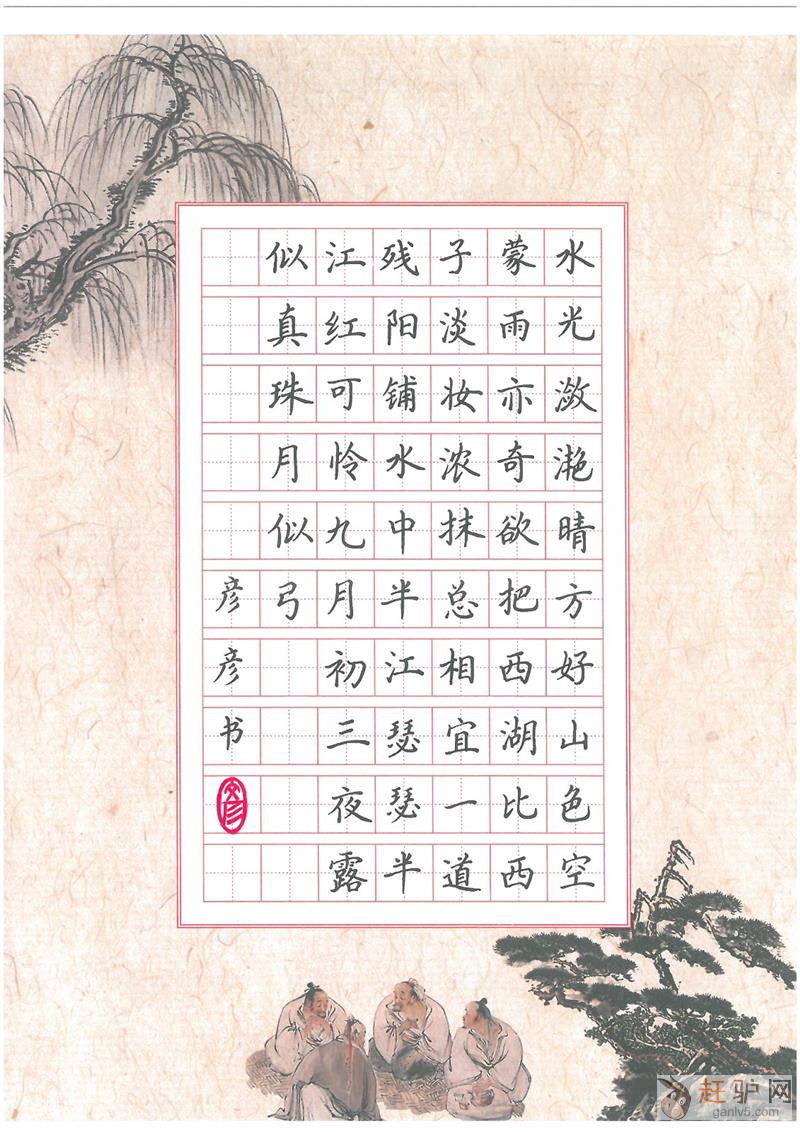 水光潋滟晴方好山色空
蒙雨亦奇欲把西湖比西
子淡妆浓抹总相宜一道
残阳铺水中半江瑟瑟半
江红可怜九月初三夜露
似真珠月似弓
彦彦书
赶驴网
ganlv5.com